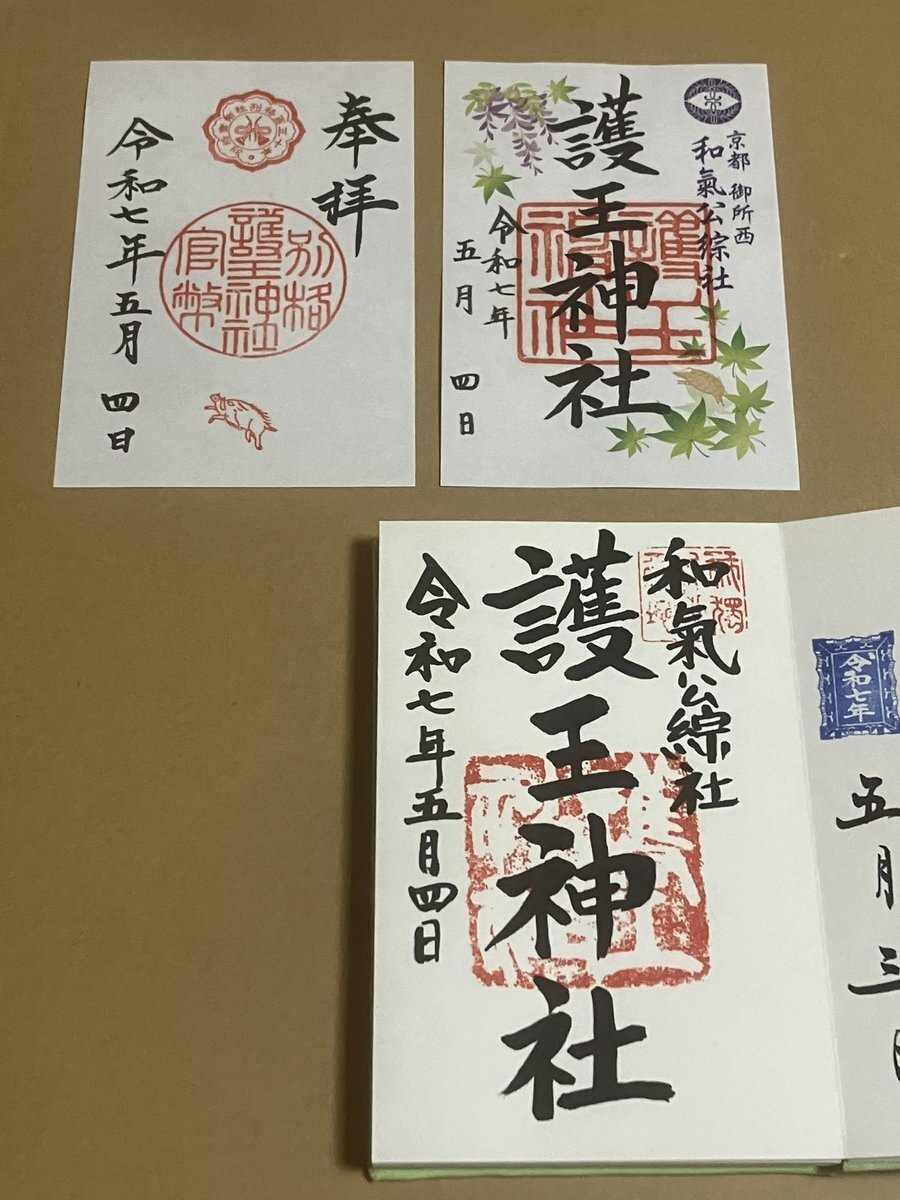 奉拝
別格
護王神社
官幣
令和七年五月四日
京都 御所西
和氣公綜社
護王神社
護王
神社
令和七年
五月 四日
和氣公綜社
護王神社
令和七年五月四日
令和七年
五月三日